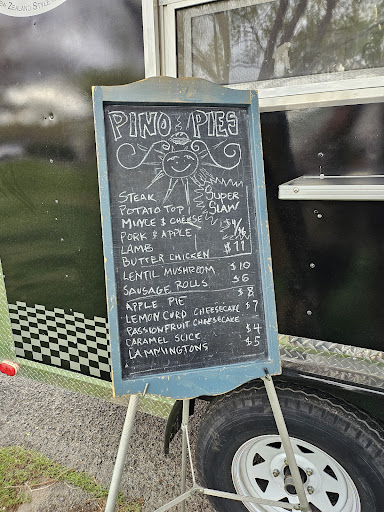 ZEALAND STYLE
PINO PIES
STEAK
POTATO TOP
SUPER
SLAW
MINCE & CHEESE
$4/
PORK & APPLE
LAMB
$11
BUTTER CHICKEN
LENTIL MUSHROOM $10
SAUSAGE ROLLS $6
APPLE PIE $8
LEMON CURD CHEESECAKE $7
PASSIONFRUIT CHEESECAKE
CARAMEL SLICE $4
LAMMINGTONS $5